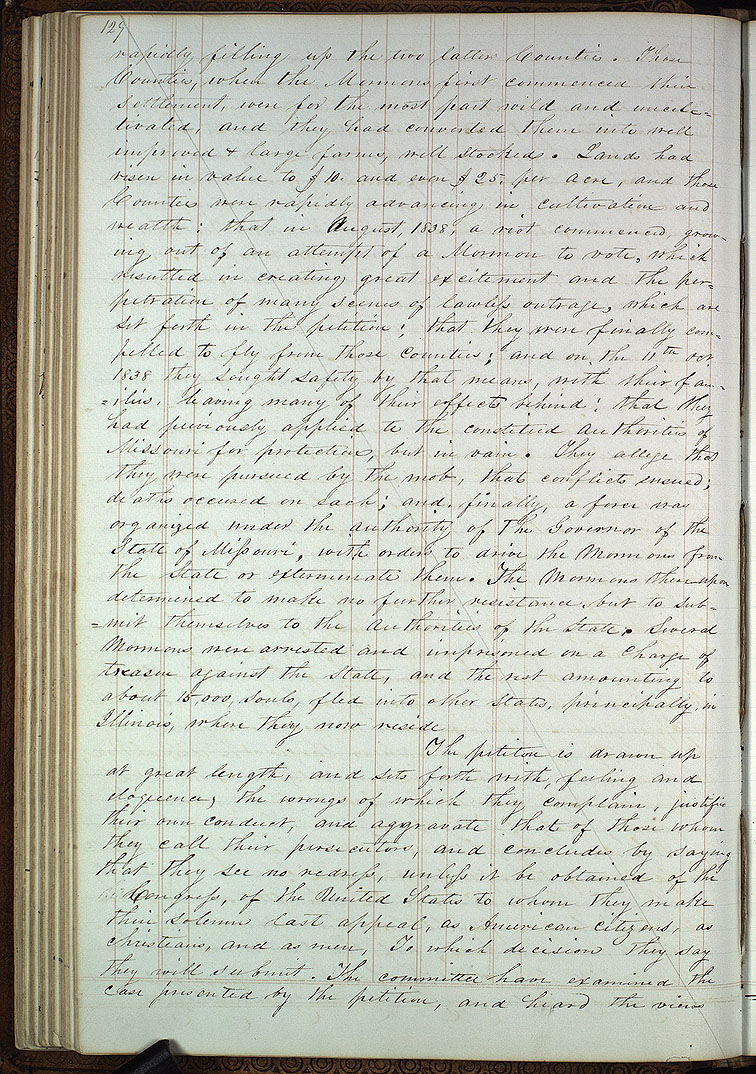 129
rapidly filling up the two latter Counties. Those
Counties, when the Mormons first commenced their
settlement, were for the most part wild and uncul-
tivated, and they had converted them into well
improved & large farms, well stocked. Lands had
risen in value to $10. and even $25. per acre, and those
Counties were rapidly advancing in cultivation and
wealth: that in August, 1838, a riot commenced, grow-
ing out of an attempt of a Mormon to vote, which
resulted in creating great excitement and the per-
petration of many scenes of lawless outrage, which are
set forth in the petition; that they were finally com-
pelled to fly from those counties; and on the 11th Oct.
1838 they sought safety by that means, with their fam-
=ilies, leaving many of their effects behind: that they
had previously applied to the constituted authorities of
Missouri for protection, but in vain. They allege that
they were pursued by the mob, that conflicts ensued;
deaths occured on each; and, finally, a force was
organized under the authority of the Governor of the
State of Missouri, with orders to drive the Mormons from
the State or exterminate them. The Mormons thereupon
determined to make no further resistance but to sub-
=mit themselves to the authorities of the State. Several
Mormons were arrested and imprisoned on a charge of
treason against the State, and the rest amounting to
about 15,000, souls, fled into other States, principally in
Illinois, where they now reside
The petition is drawn up
at great length, and sets forth with, feeling and
eloquence, the wrongs of which they complain, justifies
their own conduct, and aggravate that of those whom
they call their persecutors, and concludes by saying
that they see no redress, unless it be obtained of the
Congress, of the United States to whom they make
their solemn last appeal, as American citizens, as
christians, and as men, To which decision they say
they will submit. The committee have examined the
case presented by the petition, and heard the views